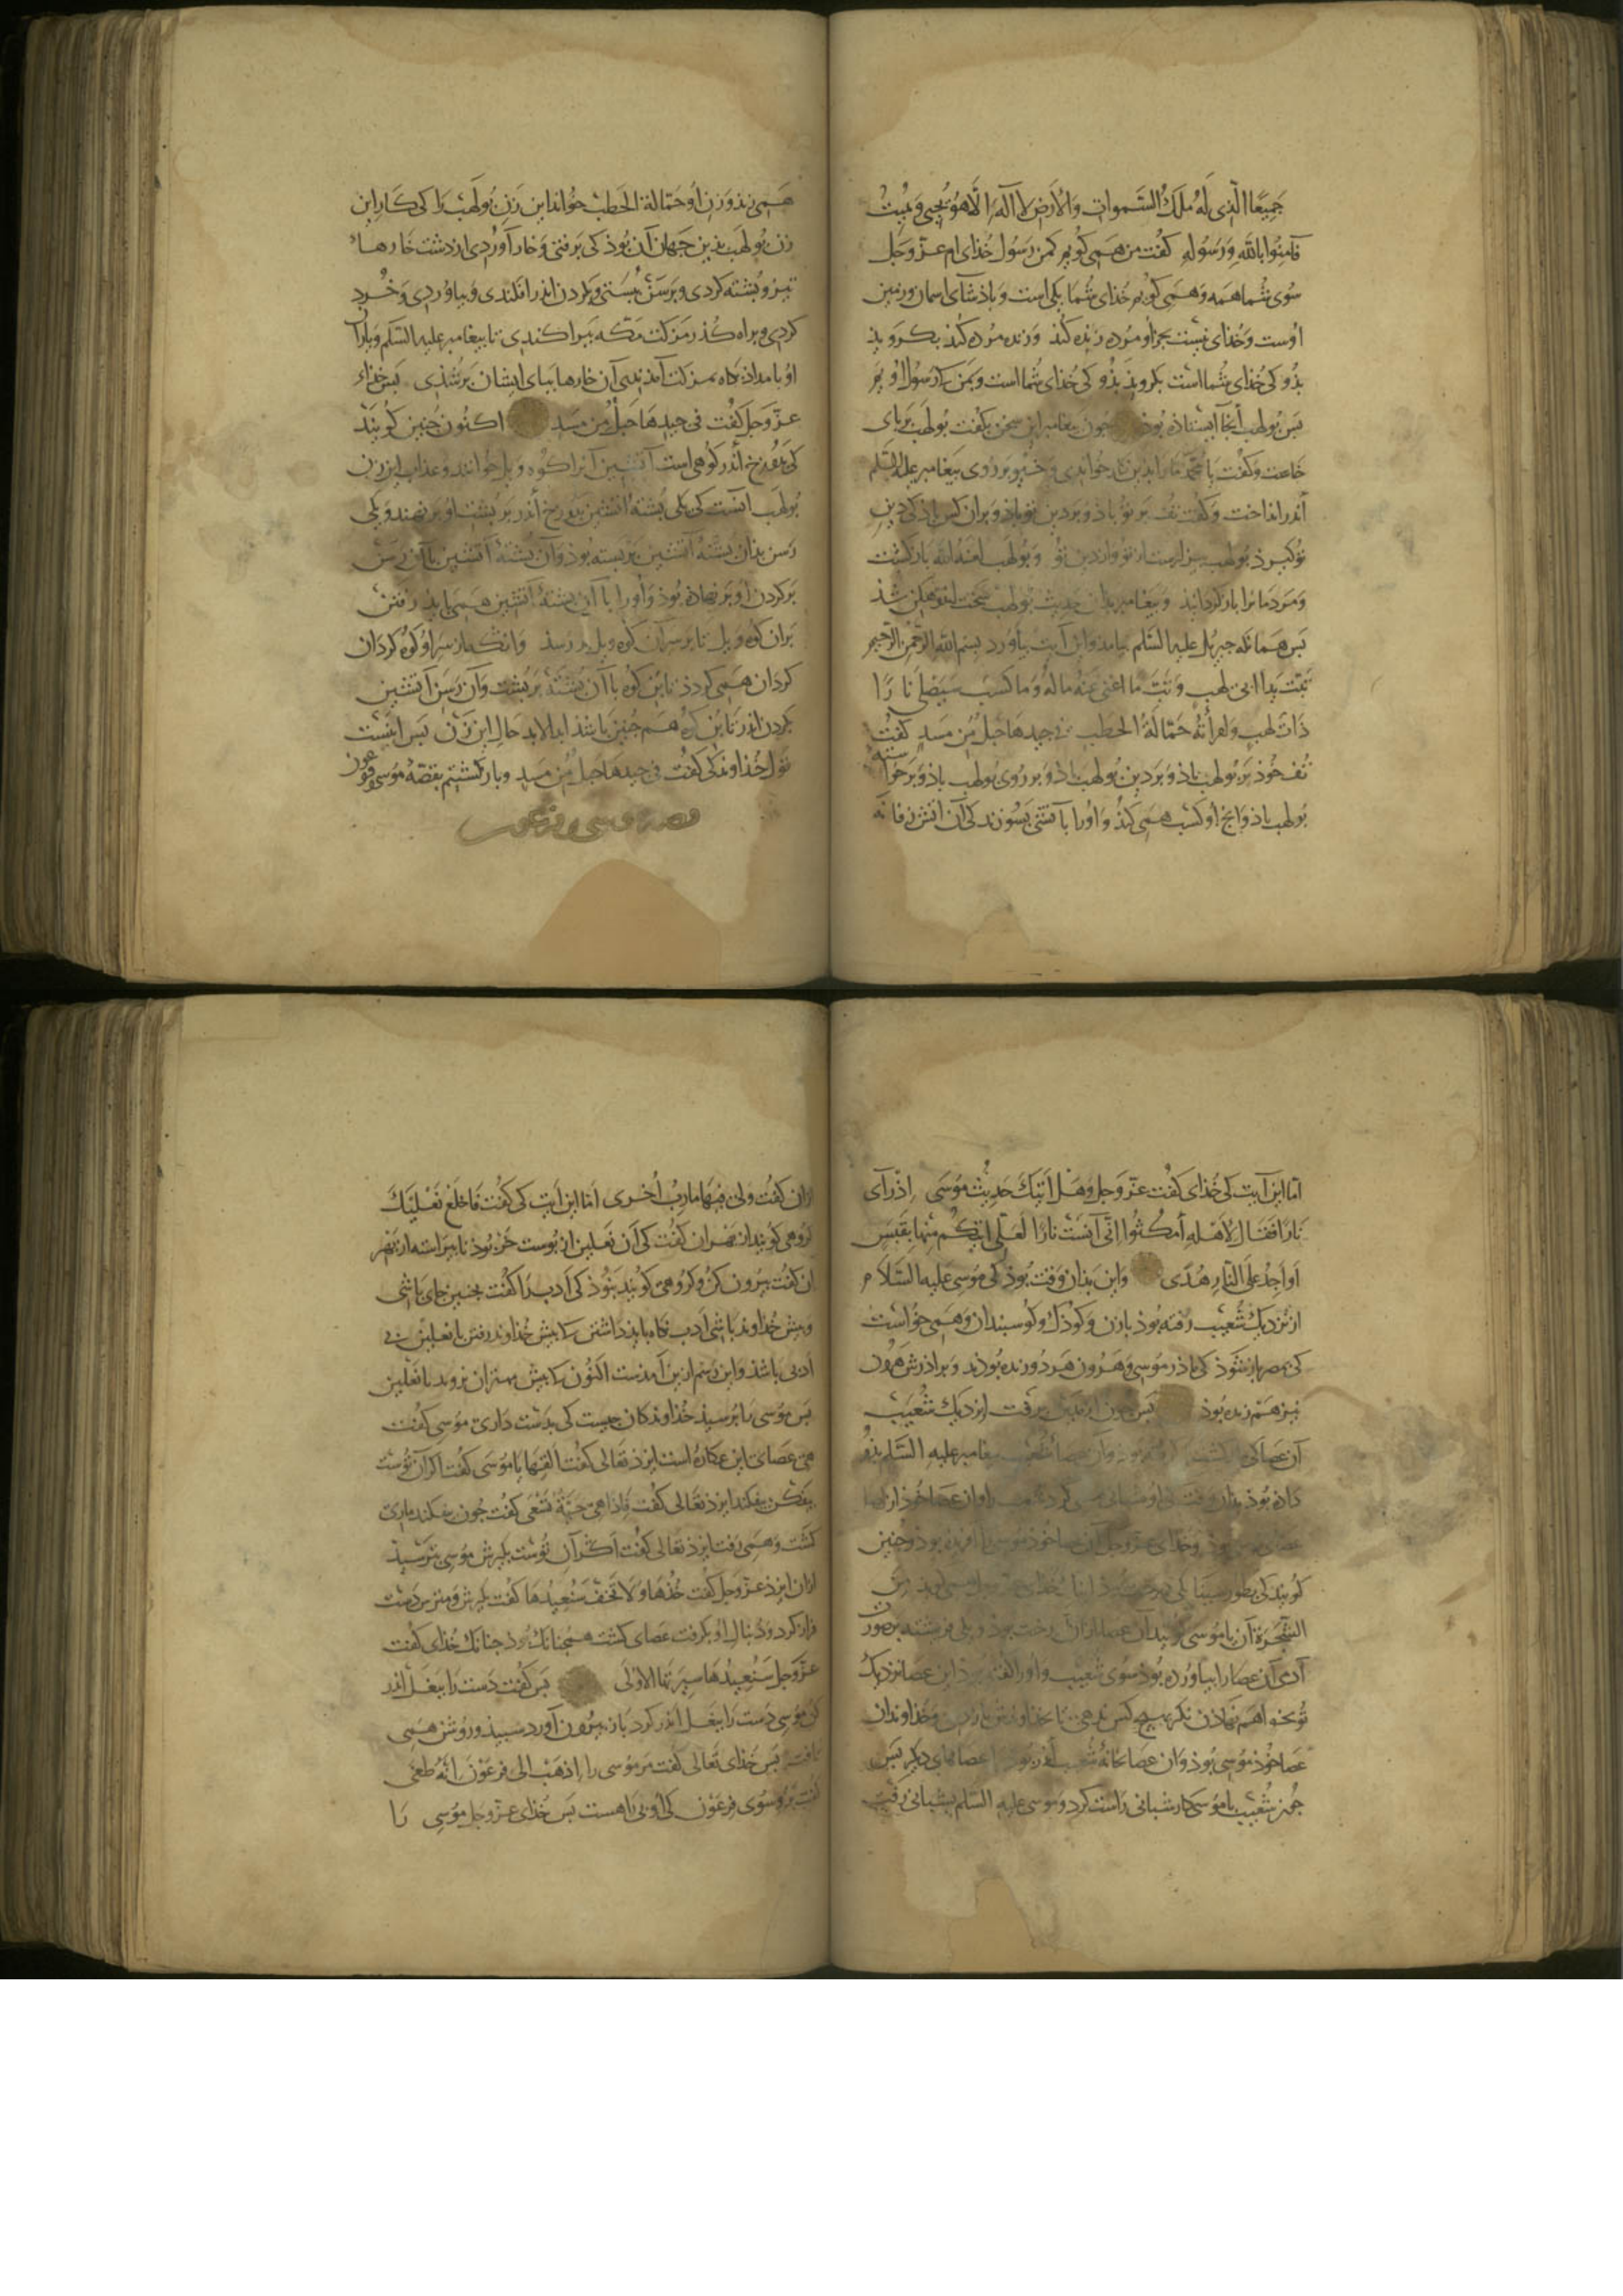 جَمِيعًا الَّذِی لَهُ مُلکُ السَّموات وَالأَرضِ لا اله الّا هُوَ یُحیی وَ یُمِیتُ
فَآمِنُوا باللّهِ وَرَسُولهِ گفت من همی گویم کمن رسول خدای ام عزّ وجل
سوی شما همه و همی گویم خدای شما یکی است و باذشای اسمان و زمین
اوست و خدای نیست بجز او مرده زنده کند و زنده مرده کند بکرویذ
بذو کی خدای شما است بکرویذ بذو کی خدای شما است و بمن که رسول اویم
بس بولهب آنجا ایستاذه بوذ جون بیغامبر این سخن بکفت بولهب بر بای
خاست و کفت یا محمد ما را بدین خواندی و خیو بر روی بیغامبر علیه السلم
اندر انداخت و کفت تف بر تو باذ و بر دین تو باذ و بران کس باذ کی دین
تو کیرذ بولهب بیزارست از تو و از دین تو و بولهب لعنه الله باز کشت
و مردمانرا باز کردانیذ و بیغامبر بذان حدیث بولهب سخت اندوهکن شذ
بس همانکه جبریل علیه السلم بیامذ و این آیت بیاورد بسم الله الرّحمن الرّحیم
تَبَّت یَدا ابی لهب وَ تَبَّ ما اغنی عَنهُ مالُهُ وَما کَسَبَ سَیَصلی نَارًا
ذاتَ لَهبٍ وَامرأتُهُ حَمّالَةُ الحَطَبِ فی جیدِهَا حَبلٌ مِن مَسَدٍ کفت
تف خوذ بر بولهب باذ و بر دین بولهب باذ و بر روی بولهب باذ و بر خواسته
بولهب باذ و انج او کسب همی کند و او را با آتشی بسوزند کی آن اتش زفانه
همی زند و زن او حَمّالة الحَطَب خواند این زن بولهب را کی کار این
زن بولهب بذین جهان آن بوذ کی برفتی و خار آوردی از دشت خارهاء
تیز و بشته کردی و برسن ببستی و بکردن اندر افکندی و بیاوردی و خرد
کردی و براه کذر مزکت مکه ببراکندی تا بیغامبر علیه السلم و یاران
او بامداذ بکاه بمزکت آمذندی آن خارها ببای ایشان بر شذی بس خذاء
عزّ وجل کفت فی جیدِهَا حَبلٌ مِن مَسَدٍ اکنون جنین کویند
کی بدوزخ اندر کوهی است آتشین آنرا کوه ویل خوانند و عذاب این زن
بولهب آنست کی یکی بشتهٔ آتشین بدوزخ اندر بر بشت او بر نهند و یکی
رسن بذان بشتهٔ آتشین بر بسته بوذ و آن بشتهٔ آتشین با آن رسن
بر کردن او بر نهاذه بوذ و او را با آن بشتهٔ آتشین همی باید رفتن
بران کوه ویل تا بر سر آن کوه ویل بر رسذ و انکه باز سر او کوه کردان
کردان همی کردذ تا بن کوه با آن بشته بر بشت و آن رسن آتشین
بکردن اندر تا بن کوه هم جنین باشذ ابدالابد حال این زن بس اینست
قول خذاوند کی کفت فی جیدِهَا حَبلٌ مِن مَسَدٍ و باز کشتیم بقصّهٔ موسی و فرعون
قصهٔ موسی و فرعون
امّا این آیت کی خدای کفت عزّ وجل وَهَل اَتیکَ حَدِیثُ مُوسَی اِذ رَآی
نَارًا فَقَالَ لِاَهلِهِ اُمکُثُوا اِنّی آنَستُ نارًا لَعَلّی آتِیکُم مِنها بِقَبَسٍ
اَو اَجِدُ عَلَی النّارِ هُدًی و این بذان وقت بوذ کی موسی علیه السَّلام
از نزدیک شعیب رفته بوذ با زن و کوذک و کوسبندان و همی خواست
کی بمصر باز شوذ کی ماذر موسی و هرون هر دو زنده بوذند و براذرش هرون
نیز هم زنده بوذ بس جون از مدین برفت از نزدیک شعیب
آن عصا کی بیغامبر علیه السَّلم بذو
داذه بوذ بذان وقت کی او شبانی همی کرد
عصاء موسی بوذ و خدای عزّ وجل آن عصا خوذ موسی را آفریذه بوذ و جنین
کویند کی بطور سینا یکی درخت بوذ
الشَّجَرة آن با موسی کویند آن عصا از ان درخت بوذ و یکی فریشته بر صورت
آدمی آن عصا را بیاورده بوذ سوی شعیب و او را کفته بوذ این عصا نزدیک
تو بخواهم نهاذن نکر بهیچ کس ندهی تا خذاوندش باز آید و خذاوند آن
عصا خوذ موسی بوذ و آن عصا بخانهٔ شعیب اندر بوذ با عصاهای دیکر بس
جون شعیب با موسی کار شبانی راست کرد و موسی علیه السلم بشبانی رفت
ازان کفت ولی فیها مارِبُ اُخری امّا این آیت کی کفت فَاخلَع نَعلَیکَ
کروهی کویند از بهر ان کفت کی آن نعلین از بوست خر بوذ نابیراسته از بهر
ان کفت بیرون کن و کروهی کویند نبوذ کی ادب را کفت بجنین جای باشی
و بیش خذاوند باشی ادب نکاه باید داشتن کی بیش خذاوند رفتن با نعلین بی
ادبی باشذ و این رسم ازین آمدست اکنون کی بیش مهتران نروند با نعلین
بس موسی را برسیذ خذاوند کان جیست کی بدست داری موسی کفت
هِیَ عَصای این عکازه است ایزذ تعالی کفت اَلقِها یا موسی کفت اکر آن توست
بیفکن بیفکند ایزذ تعالی کفت فَاِذا هِیَ حَیَّةٌ تَسعی کفت جون بیفکند ماری
کشت و همی رفت ایزذ تعالی کفت اکر آن توست بکیرش موسی بترسیذ
ازان ایزذ عزّ وجل کفت خُذهَا وَلا تَخَف سَنُعیدُهَا کفت بکیرش و مترس دست
فراز کرد و دنبال او بکرفت عصای کشت همچنانک بوذ جنانک خذای کفت
عزّ وجل سَنُعیدُهَا سِیرَتَهَا الاُولَی بس کفت دست را ببغل اندر
کن موسی دست را ببغل اندر کرد باز بیرون آورد سبیذ و روشن همی
تافت بس خذای تعالی کفت مر موسی را اِذهَب الی فِرعَون اِنَّهُ طَغَی
کفت برو سوی فرعون کی او بی راهست بس خذای عزّ وجل موسی را